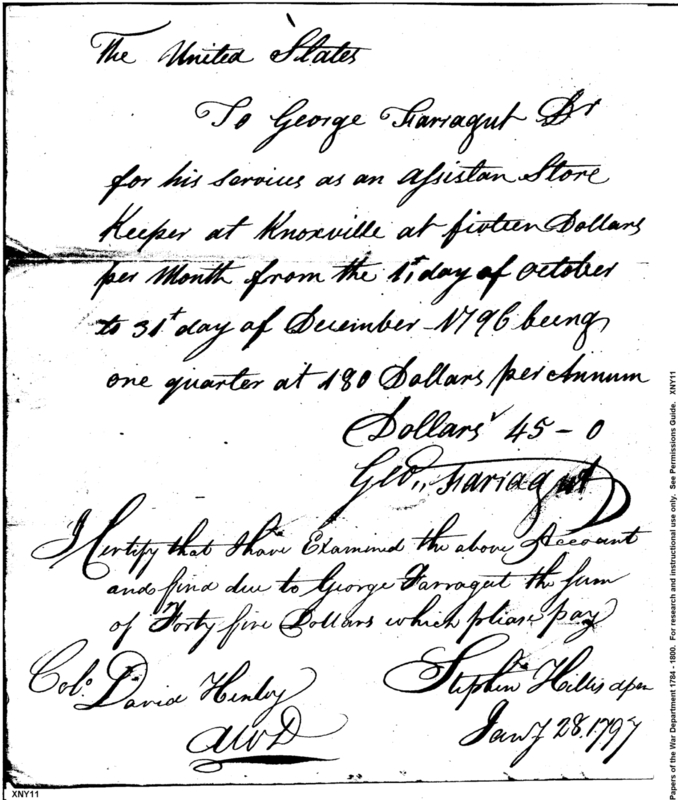 The United States
To George Farragut Dr
for his services as an assistan Store
Keeper at Knoxville at fivteen Dollars
per Month from the 1st day of october
to 31t day of December 1796 being
one quarter at 180 Dollars per Annum
Dollars 45-0
Geo,, Farragut
I Certify that I have Examined the above Account
and find due to George Farragut the sum
of Forty five Dollars which please pay
Colo. David Henley
AWD
Stephen Hillis
Jany 28. 1797
XNY11
Papers of the War Department 1784 - 1800. For research and instructional use only. See Permissions Guide. XNY11